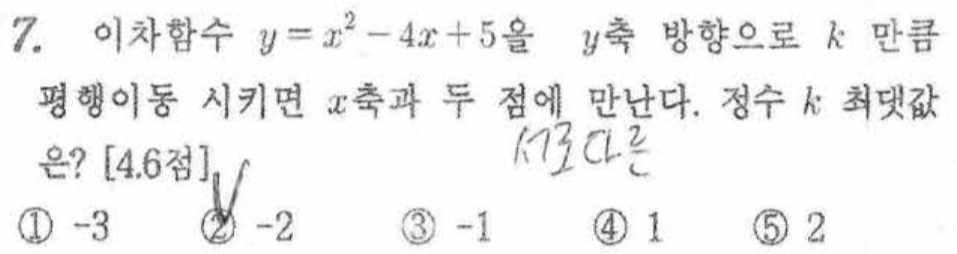 7. 이차함수 y=x²-4x+5을 y축 방향으로 k 만큼
평행이동 시키면 x축과 두 점에 만난다. 정수 k 최댓값
서로다른
은? [4.6점]
① -3 ② -2 ③ -1 ④ 1 ⑤ 2